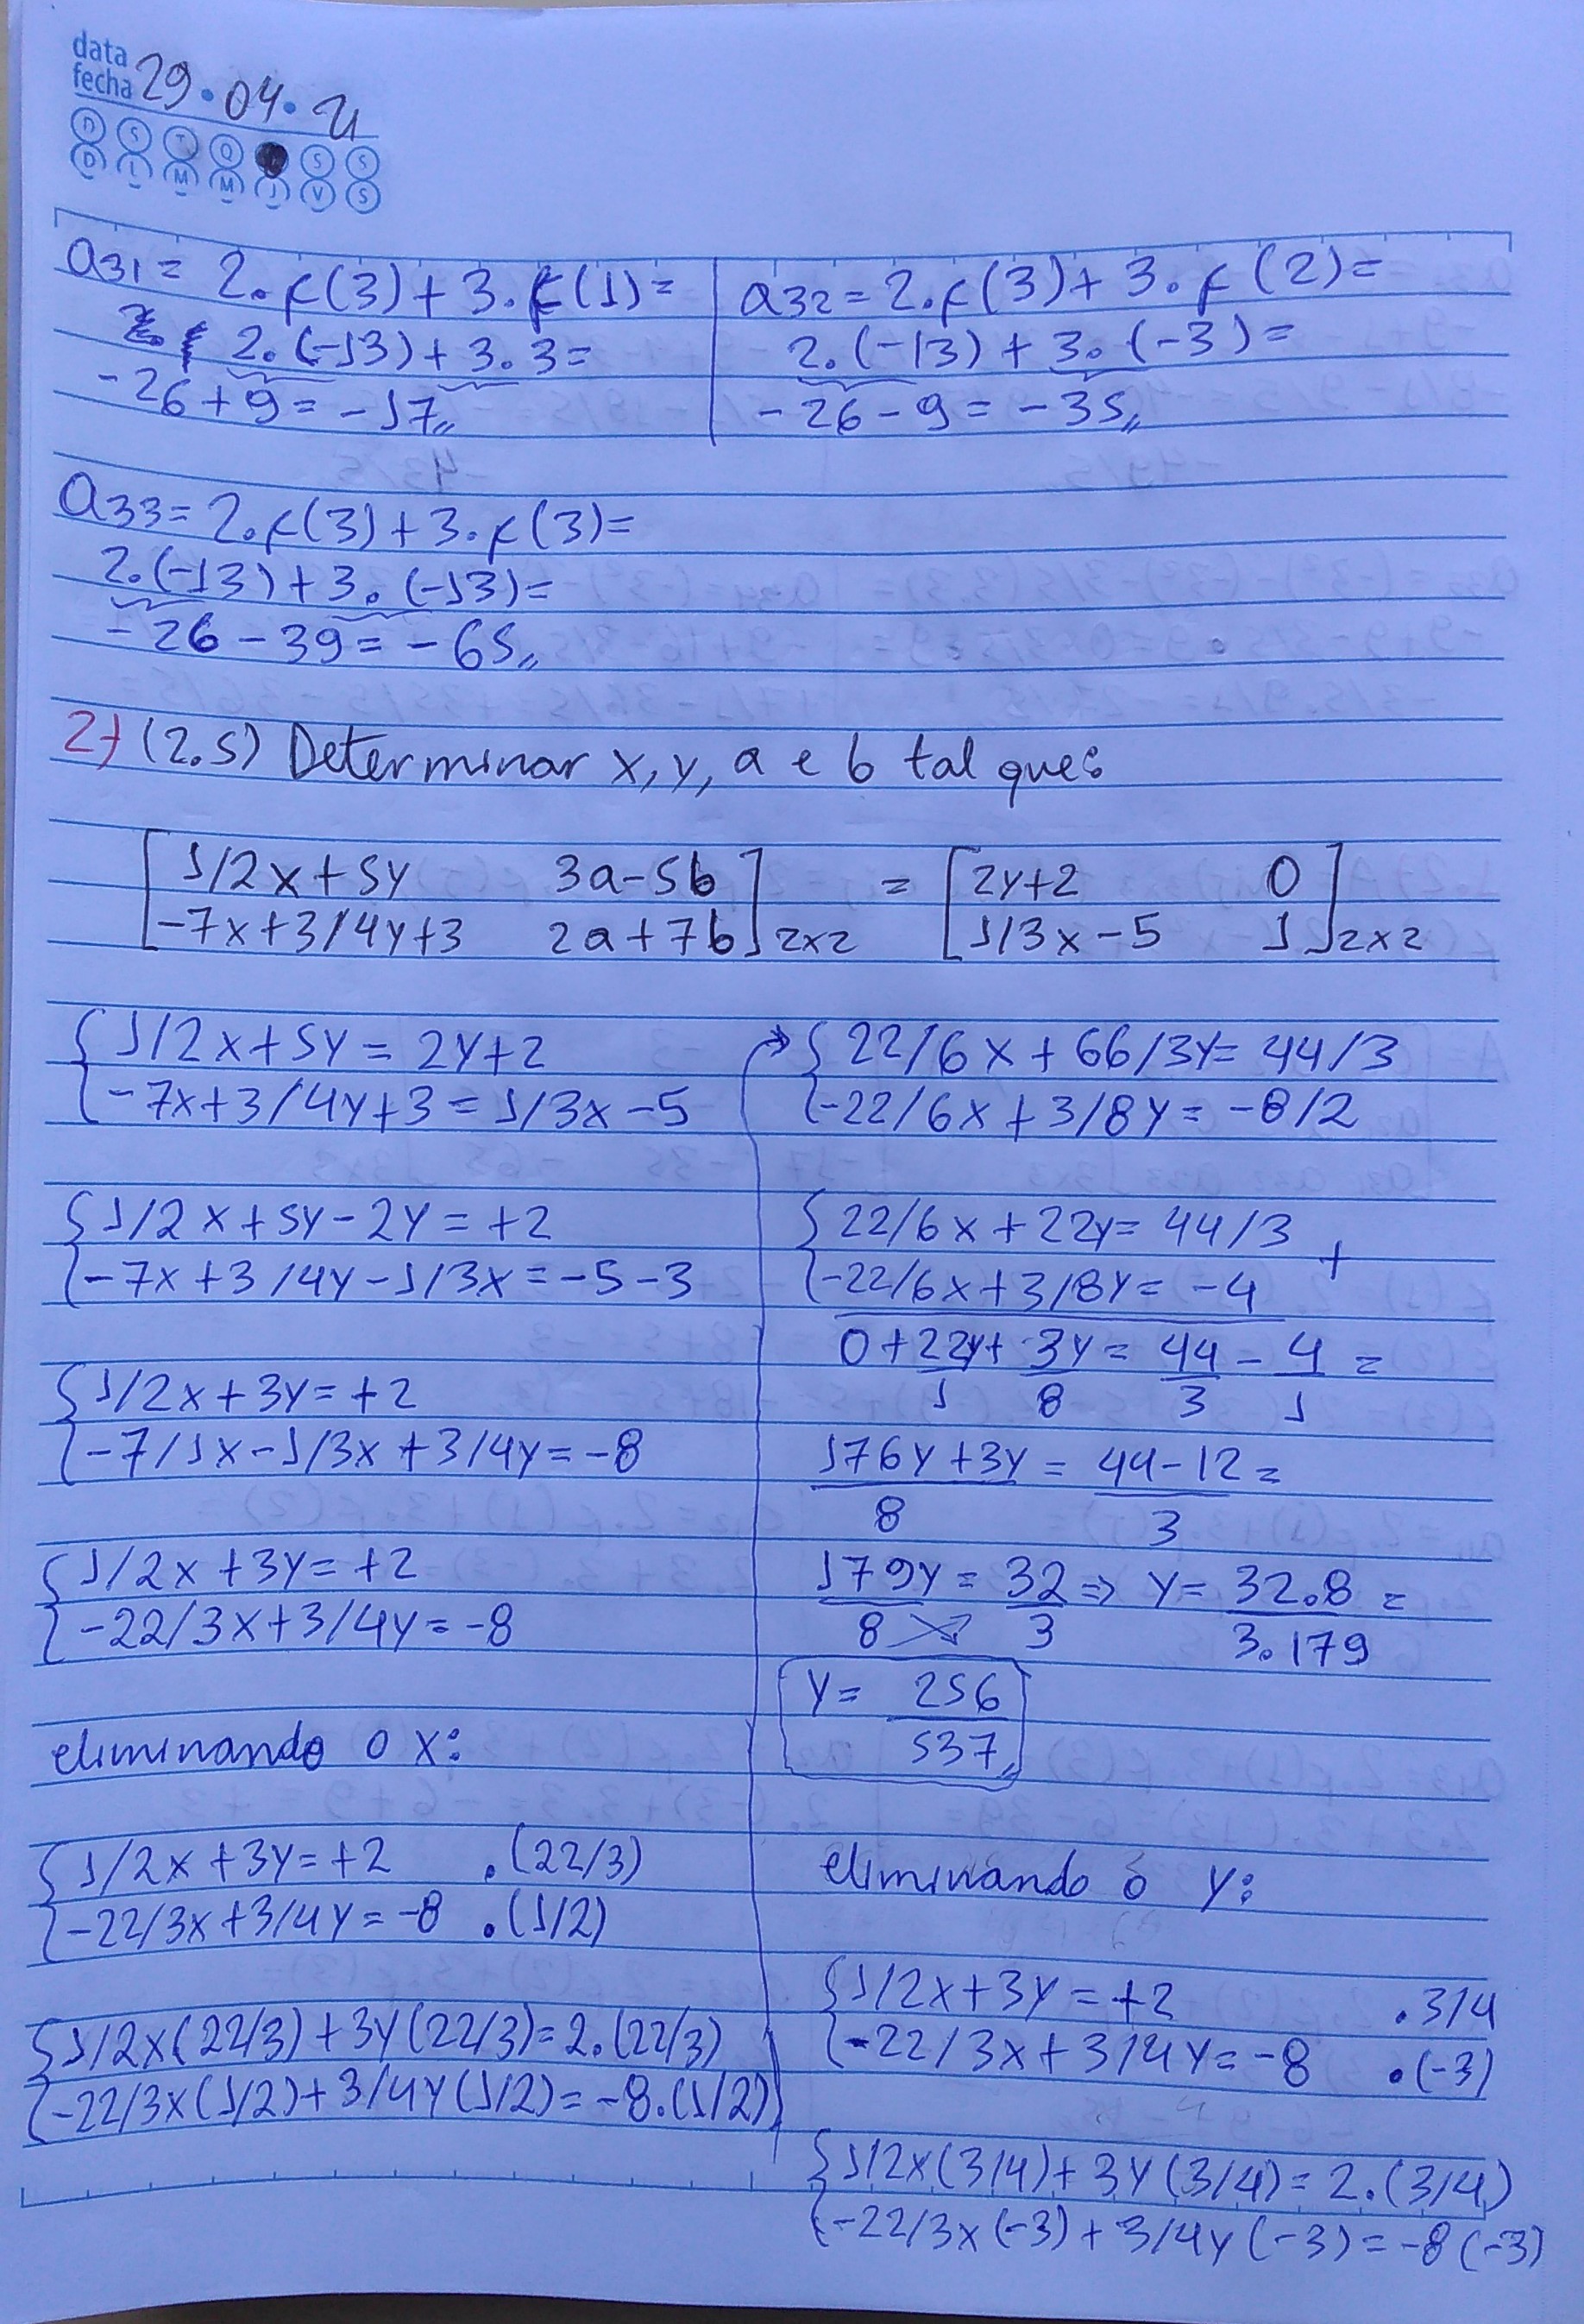 data
fecha 29.04.21
D S T Q S S
D L M M J V S
a31 = 2.f(3) + 3.f(1) =
2.(-13) + 3.3 =
-26 + 9 = -17,,
a32 = 2.f(3) + 3.f(2) =
2.(-13) + 3.(-3) =
-26 - 9 = -35,,
a33 = 2.f(3) + 3.f(3) =
2.(-13) + 3.(-13) =
-26 - 39 = -65,,
2) (2.5) Determinar x, y, a e b tal que:
[1/2x+5y 3a-5b] = [2y+2 0]
[-7x+3/4y+3 2a+7b]2x2 [1/3x-5 1]2x2
{1/2x+5y = 2y+2
{-7x+3/4y+3 = 1/3x-5
{1/2x+5y-2y = +2
{-7x+3/4y-1/3x = -5-3
{1/2x+3y = +2
{-7/1x-1/3x+3/4y = -8
{1/2x+3y = +2
{-22/3x+3/4y = -8
eliminando o x:
{1/2x+3y = +2 .(22/3)
{-22/3x+3/4y = -8 .(1/2)
{1/2x(22/3)+3y(22/3) = 2.(22/3)
{-22/3x(1/2)+3/4y(1/2) = -8.(1/2)
{22/6x+66/3y = 44/3
{-22/6x+3/8y = -8/2
{22/6x+22y = 44/3 +
{-22/6x+3/8y = -4
0+22y+ 3y = 44 - 4 =
1 8 3 1
176y+3y = 44-12 =
8 3
179y = 32 ⇒ y = 32.8 =
8 3 3.179
y = 256
537,,
eliminando o y:
{1/2x+3y = +2 .3/4
{-22/3x+3/4y = -8 .(-3)
{1/2x(3/4)+3y(3/4) = 2.(3/4)
{-22/3x(-3)+3/4y(-3) = -8(-3)